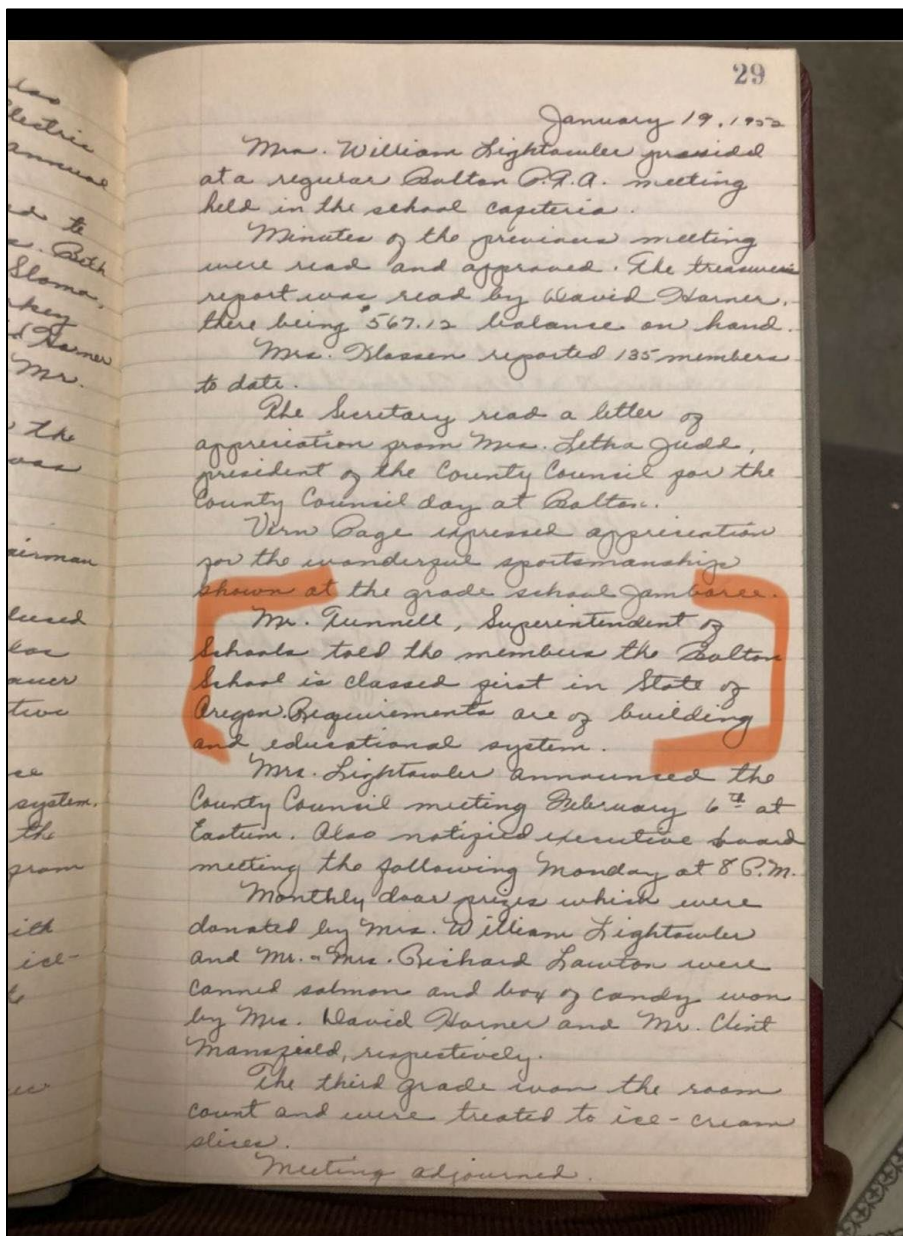 29
lso
lectric
annual
ed to
s. Beth
Sloma,
rkey
d Harner
Mr.
the
was
airman
leased
las
auer
tive
se
system.
the
gram
ith
ice-
January 19, 1952
Mrs. William Lightowler presided
at a regular Bolton P.T.A. meeting
held in the school cafeteria.
Minutes of the previous meeting
were read and approved. The treasurers
report was read by David Harner,
there being $567.12 balance on hand.
Mrs. Klassen reported 135 members
to date.
The Secretary read a letter of
appreciation from Mrs. Letha Judd,
president of the County Council for the
County Council day at Bolton.
Vern Page expressed appreciation
for the wonderful sportsmanship
shown at the grade school Jamboree.
Mr. Tunnell, Superintendent of
Schools told the members the Bolton
School is classed first in State of
Oregon. Requirements are of building
and educational system.
Mrs. Lightowler announced the
County Council meeting February 6th at
Eastum. Also notified executive board
meeting the following Monday at 8 P.M.
Monthly door prizes which were
donated by Mrs. William Lightowler
and Mr. & Mrs. Richard Lawton were
canned salmon and box of candy won
by Mrs. David Harner and Mr. Clint
Mansfield, respectively.
The third grade won the room
count and were treated to ice-cream
slices.
Meeting adjourned.